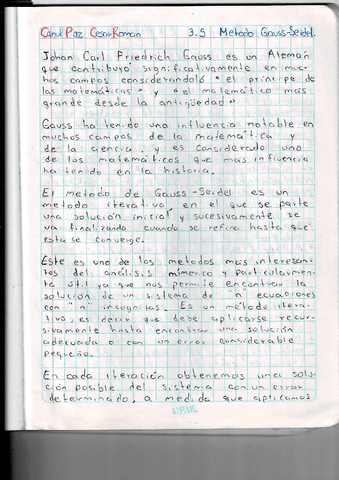 Canul Paz Cesar Roman 3.5 Metodo Gauss-Seidel.
Johan Carl Friedrich Gauss es un Alemán
que contribuyó significativamente en muc-
hos campos considerandolo "el príncipe de
las matemáticas" y "el matemático más
grande desde la antigüedad"
Gauss ha tenido una influencia notable en
muchos campos de la matemática y
de la ciencia, y es considerado uno
de los matemáticos que más influencia
ha tenido en la historia.
El metodo de Gauss-Seidel es un
metodo iterativo, en el que se parte
una solución inicial y sucesivamente se
va finalizando cuando se refina hasta que
esta se converge.
Este es uno de los metodos más interesan-
tes del análisis númerico y particularmen-
te útil ya que nos permite encontrar la
solución de un sistema de "n ecuaciones
con "n" incognitas. Es un método itera-
tivo, es decir que debe aplicarse recur-
sivamente hasta encontrar una solución
adecuada o con un error considerable
pequeño.
En cada iteración obtenemos una solu-
ción posible del sistema con un error
determinado, a medida que aplicamos